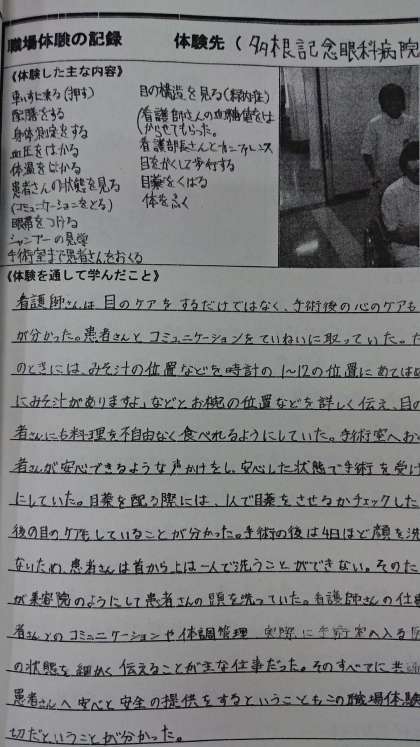 職場体験の記録 体験先（多根記念眼科病院
《体験した主な内容》
車いすに乗る(押す)
配膳をする
身体測定をする
血圧をはかる
体温をはかる
患者さんの状態を見る
(コミュニケーションをとる)
眼帯をつける
シャンプーの見学
手術室まで患者さんをおくる
目の構造を見る
(看護師さんの血糖値をは
からせてもらった。
看護部長さんとカンファレンス
目をかくして歩行する
目薬をくばる
体をふく
《体験を通して学んだこと》
看護師さんは目のケアをするだけではなく、手術後の心のケアも
が分かった。患者さんとコミュニケーションをていねいに取っていた。
のときには、みそ汁の位置などを時計の1〜12の位置にあては
にみそ汁がありますよ」などとお椀の位置などを詳しく伝え、目の
者さんにも料理を不自由なく食べれるようにしていた。手術室へお
者さんが安心できるような声かけをし、安心した状態で手術を受け
にしていた。目薬を配る際には、1人で目薬をさせるかチェックした
後の目のケアをしていることが分かった。手術の後は4日ほど顔を洗
ないため、患者さんは首から上は一人で洗うことができない。そのた
が美容院のようにして患者さんの頭を洗っていた。看護師さんの仕
者さんとのコミュニケーションや体調管理、実際に手術室へ入る
の状態を細かく伝えることが主な仕事だった。そのすべてに共通
患者さんへ安心と安全の提供をするということもこの職場体験
切だということが分かった。